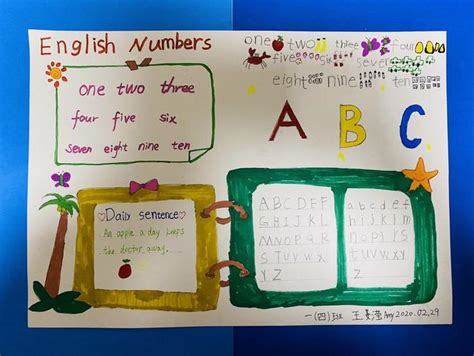 English Numbers
one two three
four five six
seven eight nine ten
one two three four
five six seven
eight nine ten
A B C
Daily sentence
An apple a day keeps
the doctor away.
ABCDEF
GHIJKL
MNOPQR
STUVWX
YZ
abcdef
ghijklm
nopqrs
tuvwxy
z
一(四)班 王曼滢 Amy 2020.02.29